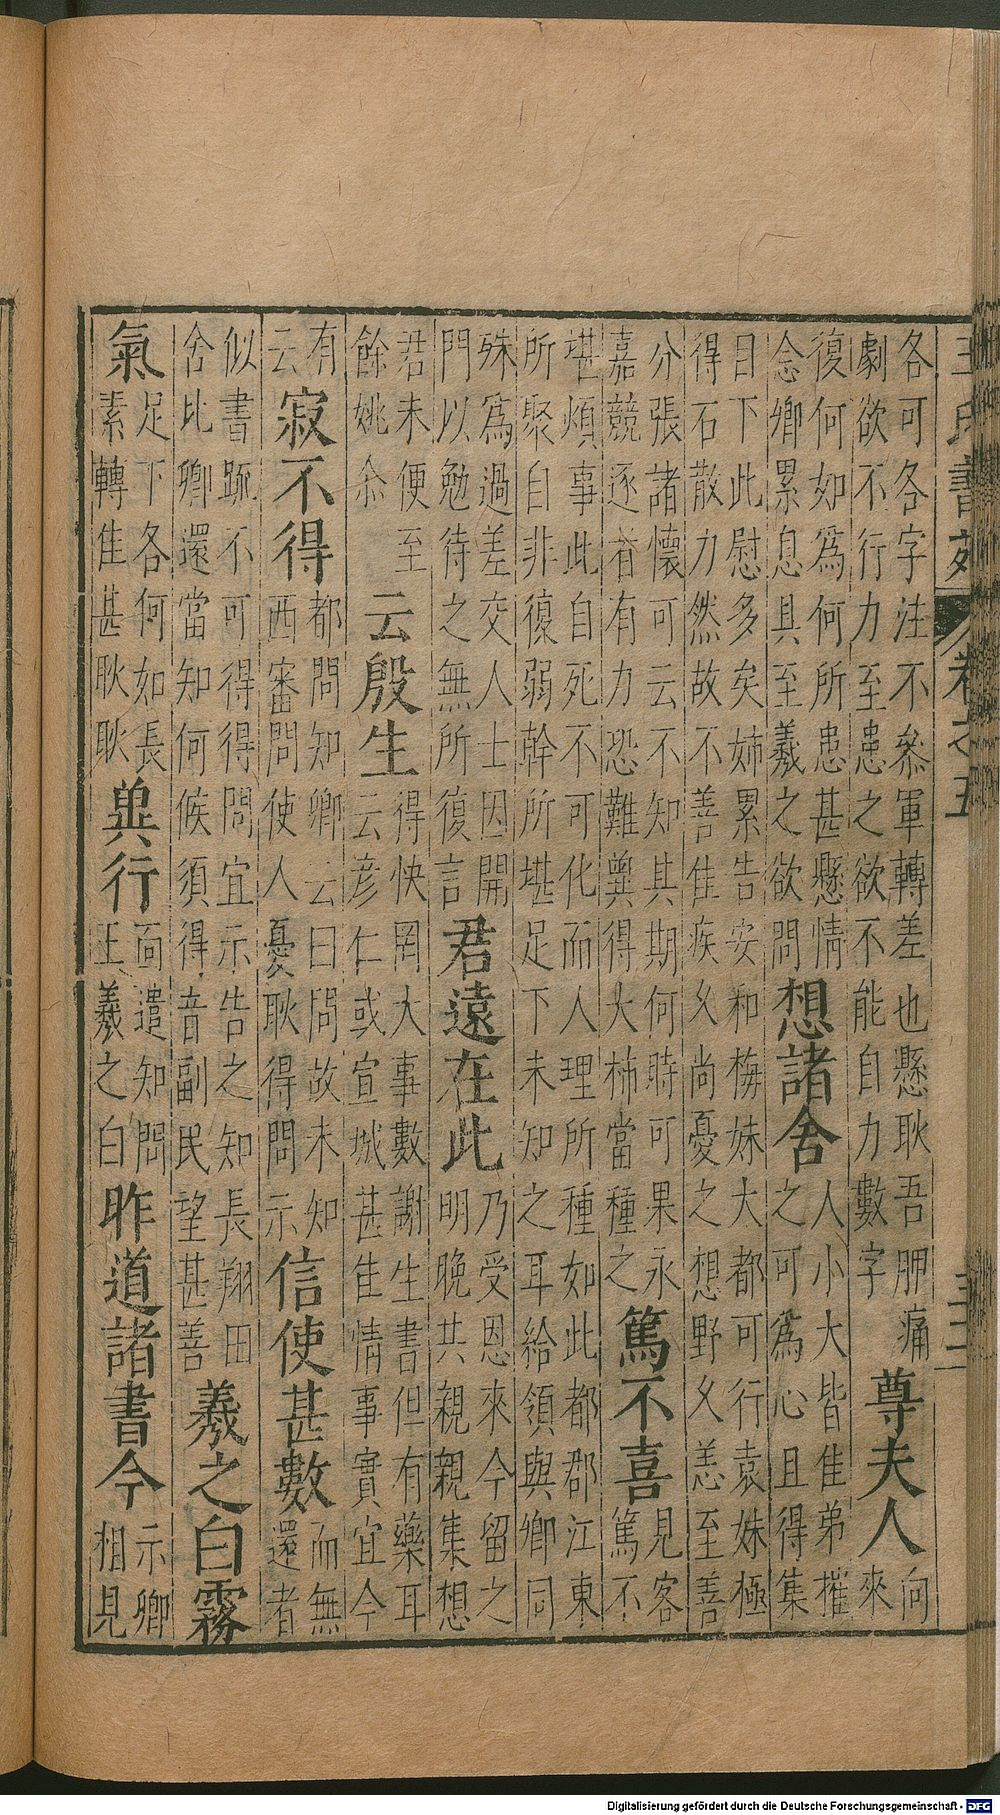 王氏書苑 卷之五
各可各字注不叅軍轉差也懸耿吾胛痛
劇欲不行力至患之欲不能自力數字
尊夫人
向
來
復何如爲何所患甚懸情
念卿累息具至羲之欲問
想諸舍
人小大皆佳弟摧
之可爲心且得集
目下此慰多矣姊累告安和梅妹大都可行袁妹極
得石散力然故不善佳疾久尚憂之想野久恙至善
分張諸懷可云不知其期何時可果永
嘉競逐者有力恐難兾得大柿當種之
篤不喜
見客
篤不
堪煩事此自死不可化而人理所種如此都郡江東
所聚自非復弱幹所堪足下未知之耳給領與卿同
殊爲過差交人士因開
門以勉待之無所復言
君遠在此
乃受恩來今留之
明晚共親親集想
君未便至
餘姚忝
云殷生
得快罔大事數謝生書但有藥耳
云彦仁或宣城甚佳情事實宜今
有
云
寂不得
都問知卿云曰問故未知
西審問使人憂耿得問示
信使甚數
而無
還者
似書䟽不可得得問宜示告之知長翔田
舍比卿還當知何候須得音副民望甚善
羲之白霧
氣
足下各何如長
素轉佳甚耿耿
兾行
面遣知問
王羲之白
昨道諸書今
示卿
相見
Digitalisierung gefördert durch die Deutsche Forschungsgemeinschaft - DFG